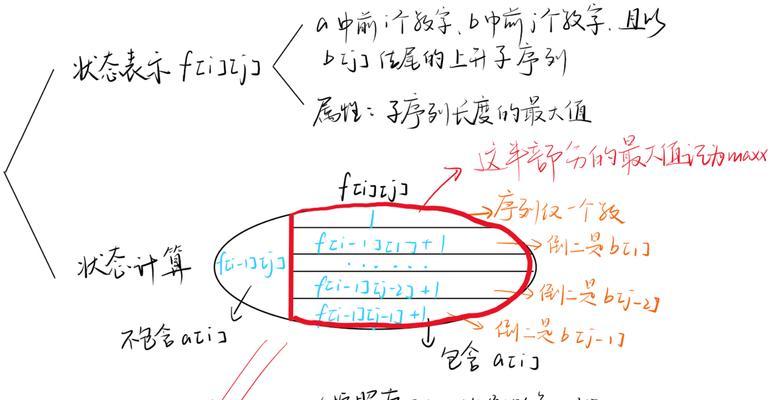 a中前i个数字、b中前j个数字,且以
b[j]结尾的上升子序列
状态表示 f[i][j]
属性:子序列长度的最大值
这半部分的最大值记为maxx
f[i][j]
1
序列仅一个数
f[i-1][1]+1
倒二是b[1]
状态计算
f[i-1][j]
......
f[i-1][j-2]+1
倒二是b[j-2]
f[i-1][j-1]+1
倒二是b[j-1]
不包含a[i]
包含a[i]